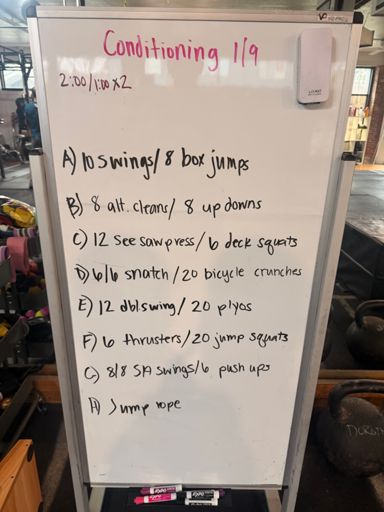 Conditioning 1/9
2:00/1:00 x2
A) 10 swings/8 box jumps
B) 8 alt. cleans/ 8 up downs
C) 12 see saw press/6 deck squats
D) 6/6 snatch/20 bicycle crunches
E) 12 dbl swing/ 20 plyos
F) 6 thrusters/20 jump squats
G) 8/8 SA swings/6 push ups
H) Jump rope
EXPO
EXPO